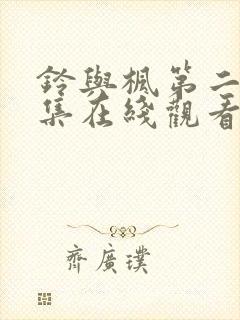 鈴與楓第二
集在綫觀看
齊廣璞